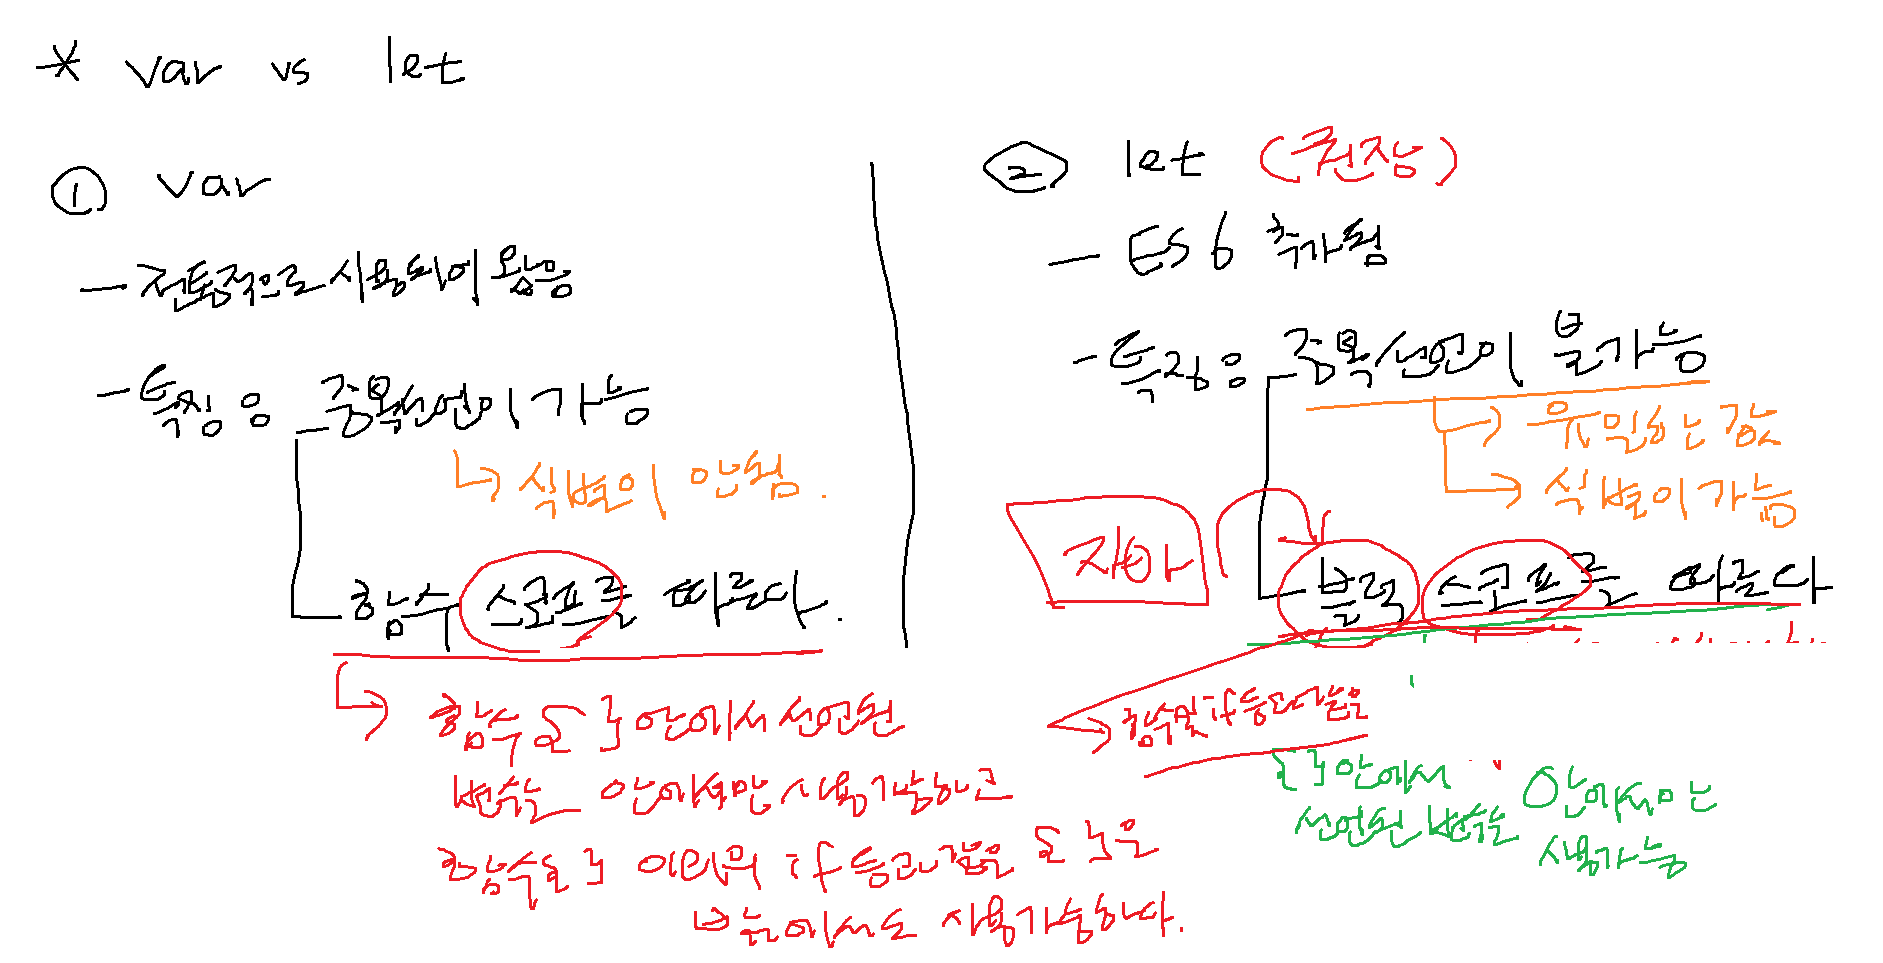 * var vs let
① var
- 전통적으로 사용되어 왔음
- 특징은 중복선언이 가능
↳ 식별이 안됨.
함수 스코프를 따른다.
↳ 함수 { } 안에서 선언된
변수는 안에서만 사용가능하고
함수{ } 이외의 if 등과 같은 { }은
밖에서도 사용가능하다.
② let (권장)
- ES6 추가됨
- 특징은 중복선언이 불가능
→ 유일하는 값
→ 식별이 가능
자바
블럭 스코프를 따른다
→ 함수및 if 등과 같은
{ } 안에서
선언된 변수는 안에서만
사용가능